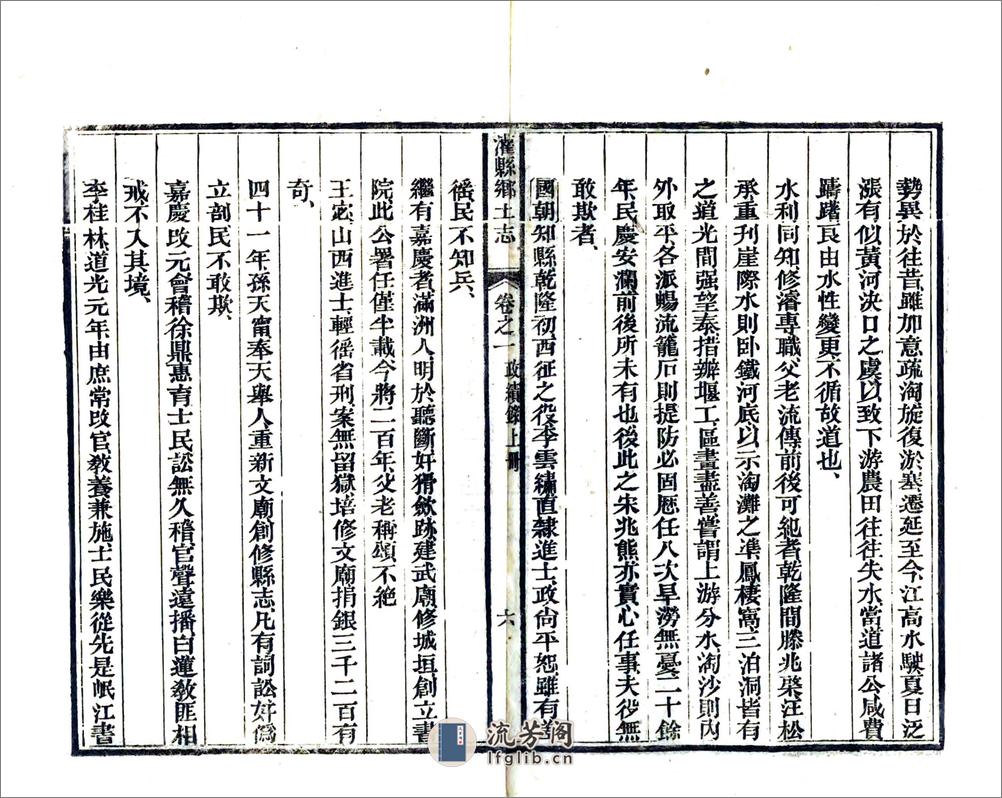 勢異於往昔、雖加意疏淘、旋復淤塞、遷延至今、江高水駛、夏日泛
漲、有似黃河決口之虞、以致下游農田往往失水、當道諸公、咸費
躊躇、良由水性變更、不循故道也、
水利同知修濬專職、父老流傳前後可紀者、乾隆間滕兆棨、汪松
承重刊崖際水則、卧鐵河底、以示淘灘之準、鳳棲窩、三泊洞皆有
之、道光間强望泰、措辦堰工、區畫盡善、嘗謂上游分水、淘沙則內
外取平、各派暢流、籠石則提防必固、歷任八次、旱澇無憂、二十餘
年、民慶安瀾、前後所未有也、後此之宋兆熊亦實心任事、夫役無
敢欺者、
國朝知縣、乾隆初、西征之役、李雲繡直隸進士、政尚平恕、雖有
灌縣鄉土志 卷之一 政績錄上冊 六
徭、民不知兵、
繼有嘉慶者、滿洲人、明於聽斷、奸猾斂跡、建武廟、修城垣、創立書
院、此公署任僅半載、今將二百年、父老稱頌不絶
王宓、山西進士、輕徭省刑、案無留獄、培修文廟、捐銀三千二百有
奇、
四十一年、孫天甯奉天舉人、重新文廟、創修縣志、凡有詞訟奸僞
立剖、民不敢欺、
嘉慶改元、會稽徐鼎惠育士民、訟無久稽、官聲遠播、白蓮敎匪相
戒、不入其境、
李桂林、道光元年、由庶常改官、敎養兼施、士民樂從、先是岷江書
流芳阁
lfglib.cn